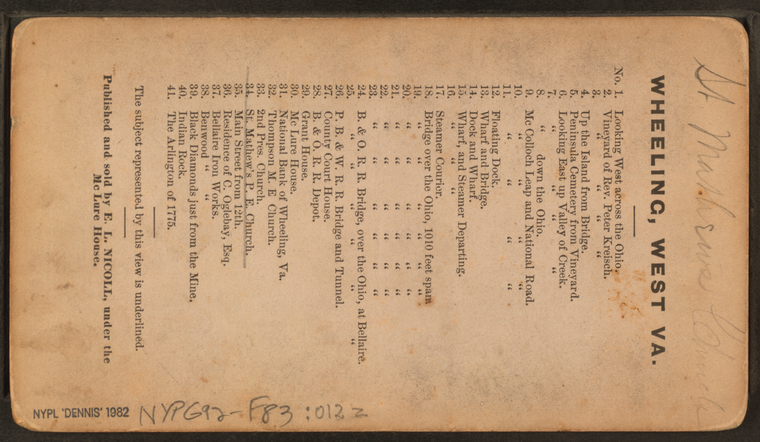 St Mathews Church
WHEELING, WEST VA.
No. 1. Looking West across the Ohio.
2. Vineyard of Rev. Peter Kreisch.
3. “ “ “ “
4. Up the Island from Bridge.
5. Peninsula Cemetery from Vineyard.
6. Looking East up Valley of Creek.
7. “ “ “ “
8. “ down the Ohio.
9. Mc Colloch Leap and National Road.
10. “ “ “ “
11. “ “ “ “
12. Floating Dock.
13. Wharf and Bridge.
14. Dock and Wharf.
15. Wharf, and Steamer Departing.
16. “ “ “
17. Steamer Courior.
18. Bridge over the Ohio, 1010 feet span
19. “ “ “ “ “
20. “ “ “ “ “
21. “ “ “ “ “
22. “ “ “ “ “
23. “ “ “ “ “
24. B. & O. R. R. Bridge, over the Ohio, at Bellaire.
25. “ “ “ “ “
26. P. B. & W. R. R. Bridge and Tunnel.
27. County Court House.
28. B. & O. R. R. Depot.
29. Grant House.
30. Mc Lure House.
31. National Bank of Wheeling, Va.
32. Thompson M. E Church.
33. 2nd Pres. Church.
34. St. Mathew's P. E. Church.
35. Main Street from 12th.
36. Residence of C. Oglebay, Esq.
37. Bellaire Iron Works.
38. Benwood “ “
39. Black Diamonds just from the Mine.
40. Indian Rock.
41. The Arlington of 1775.
The subject represented by this view is underlined.
Published and sold by E. L. NICOLL, under the
Mc Lure House.
NYPL 'DENNIS' 1982
NYPG92-F83 :0122